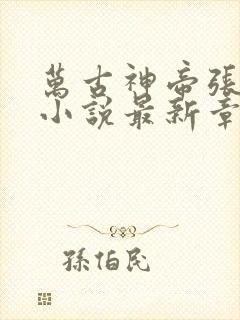 萬古神帝張
小說最新章
孫伯民